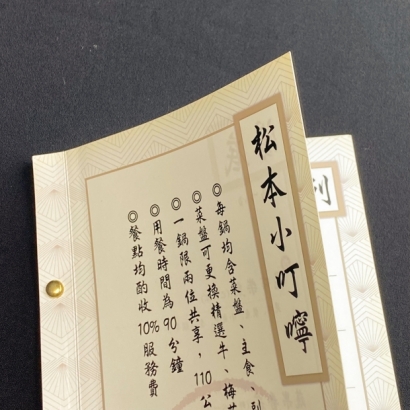 松本小叮嚀
◎每鍋均含菜盤、主食、
◎菜盤可更換精選牛、梅
◎一鍋限兩位共享，110公
◎用餐時間為90分鐘
◎餐點均酌收10%服務費